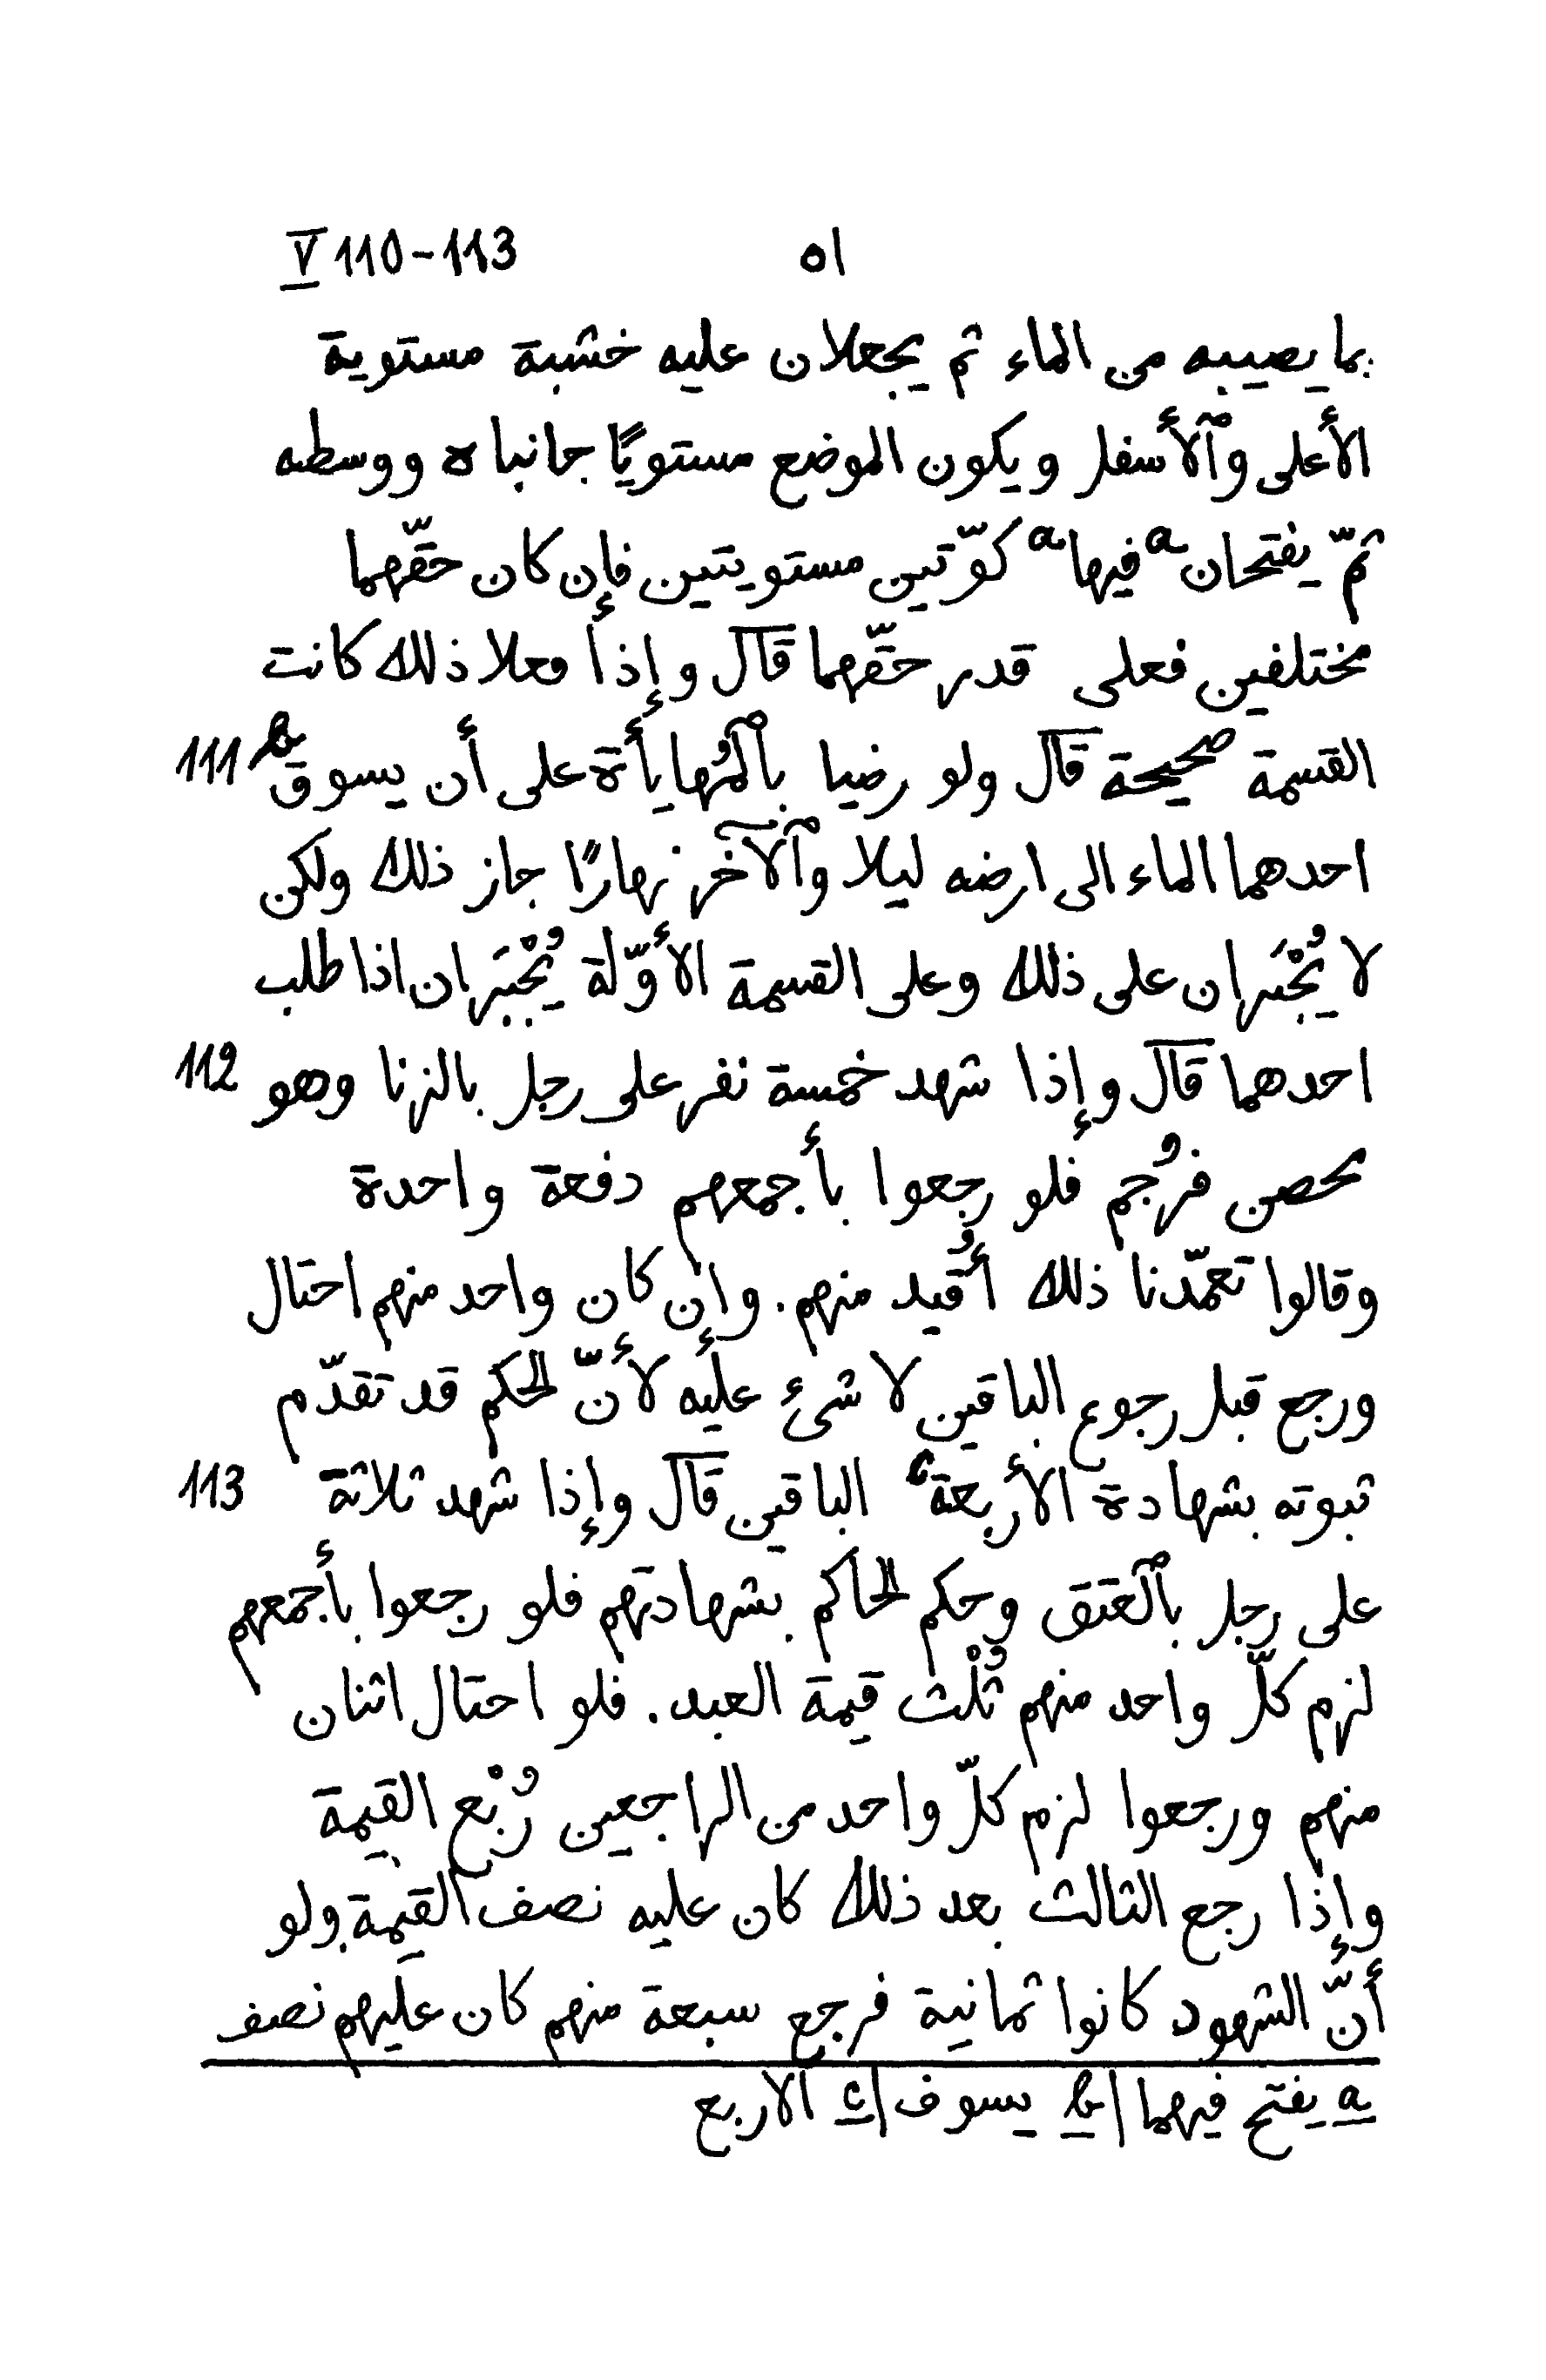 V 110-113 ٥١
بما يصيبه من الماء ثم يجعلان عليه خشبة مستوية
الأعلى وٱلأسفل ويكون الموضع مستويًا جانباه ووسطه
ثمّ يفتحان a فيها a كوّتين مستويتين فإن كان حقّهما
مختلفين فعلى قدر حقّهما قال وإذا فعلا ذلك كانت
القسمة صحيحة قال ولو رضيا بٱلمُهايأة على أن يسوق b 111
احدهما الماء الى ارضه ليلا وٱلآخر نهارًا جاز ذلك ولكن
لا يُجْبَران على ذلك وعلى القسمة الأوّلة يُجْبَران اذا طلب
احدهما قال وإذا شهد خمسة نفر على رجل بالزنا وهو 112
محصن فرُجم فلو رجعوا بأجمعهم دفعة واحدة
وقالوا تعمّدنا ذلك أُقيد منهم. وإن كان واحد منهم احتال
ورجع قبل رجوع الباقين لا شئ عليه لأنّ الحكم قد تقدّم
ثبوته بشهادة الأربعة c الباقين قال وإذا شهد ثلاثة 113
على رجل بٱلعتق وحكم الحاكم بشهادتهم فلو رجعوا بأجمعهم
لزم كلّ واحد منهم ثُلْث قيمة العبد. فلو احتال اثنان
منهم ورجعوا لزم كلّ واحد من الراجعين رُبْع القيمة
وإذا رجع الثالث بعد ذلك كان عليه نصف القيمة. ولو
أنّ الشهود كانوا ثمانية فرجع سبعة منهم كان عليهم نصف
a يفتح فيهما | b يسوف | c الاربع